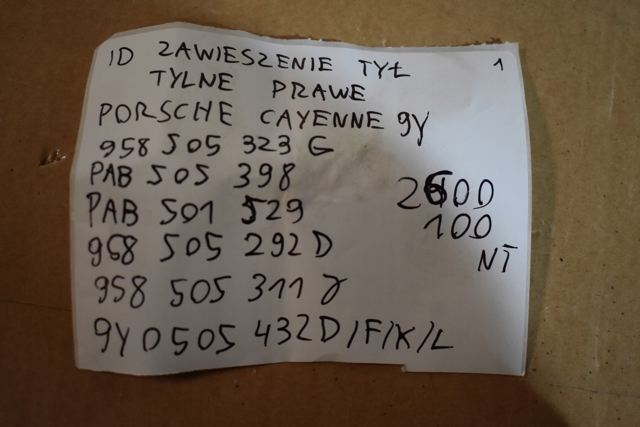 ID ZAWIESZENIE TYŁ 1
TYLNE PRAWE
PORSCHE CAYENNE 9Y
958 505 323 G
PAB 505 398
PAB 501 529
958 505 292 D
958 505 311 J
9Y0505 432D/F/K/L
2600
100
NT